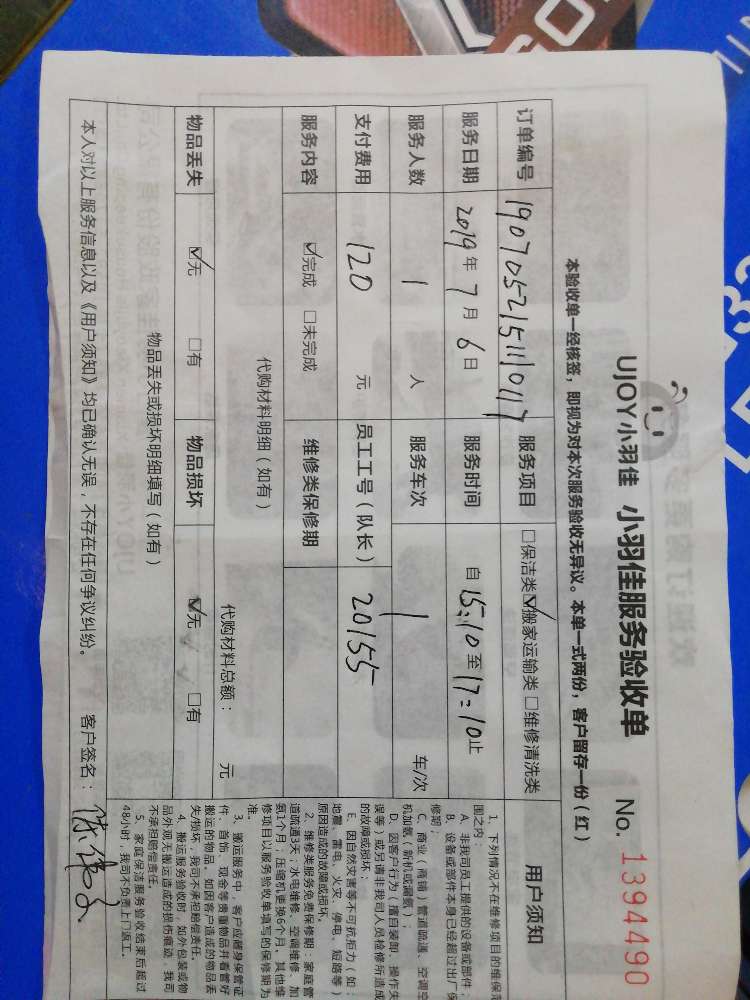 UJOY小羽佳 小羽佳服务验收单 No. 1394490
本验收单一经核签，即视为对本次服务验收无异议。本单一式两份，客户留存一份（红）
订单编号 190705215110117 服务项目 □保洁类☑搬家运输类 □维修清洗类
服务日期 2019年7月6日 服务时间 自15:10至17:10止
服务人数 1 人 服务车次 1 车/次
支付费用 120 元 员工工号（队长） 20155
服务内容 ☑完成 □未完成 维修类保修期
代购材料明细（如有） 代购材料总额： 元
物品丢失 ☑无 □有 物品损坏 ☑无 □有
物品丢失或损坏明细填写（如有）
本人对以上服务信息以及《用户须知》均已确认无误，不存在任何争议纠纷。 客户签名：
用户须知
1、下列情况不在维修项目的维保范
围之内：
A、非我司员工提供的设备或部件；
B、设备或部件本身已经超过出厂保
修期；
C、商业（商铺）管道疏通、空调空
机加氨（新机或漏氨）；
D、因客户行为（擅自装卸、操作失
误等）或另请非我司人员检修所造成
的故障或损坏；
E、因自然灾害等不可抗拒力（如：
地震、雷电、火灾、停电、短路等）
原因造成的故障或损坏。
2、维修类服务免费保修期：家庭管
道疏通3天；水电维修、空调维修、加
氨1个月，压缩机更换6个月。其他维
修项目以服务验收单填写的保修期为
准。
3、搬运服务中，客户应随身保管证
件、首饰、现金等贵重物品并看管好
搬运的物品。如因客户造成的物品丢
失/损坏，我司不承担赔偿责任。
4、搬运服务验收时，如外包装或物
品外观无搬运造成的损伤痕迹，我司
不承担赔偿责任。
5、家庭保洁服务验收结束后超过
48小时，我司不负责上门返工。